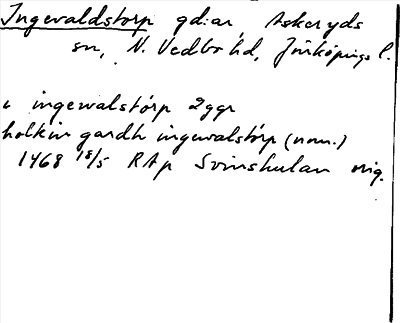 Ingevaldstorp gd:ar, Askeryds
sn, N. Vedbo hd, Jönköpings l.
i ingewalstórp 2 ggr
holkin gardh ingewalstórp (nom.)
1468 18/5 RAp Svinshulan orig.